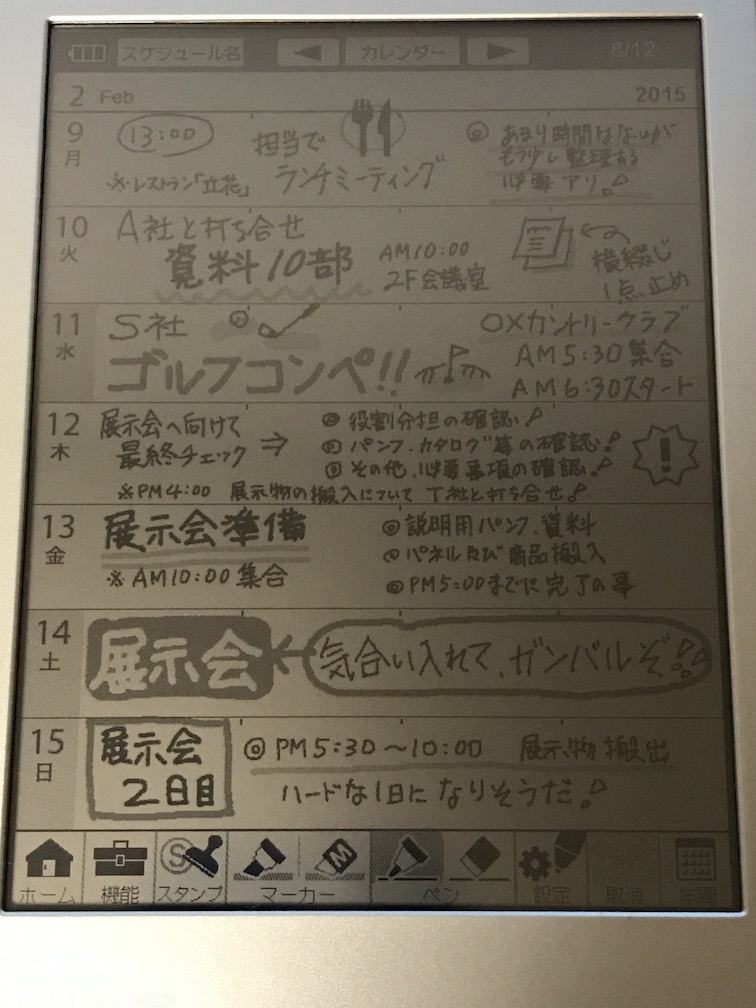 スケジュール名 ◀ カレンダー ▶ 8/12
2 Feb 2015
9 月
13:00 担当で
ランチミーティング
※レストラン「立花」
◎ あまり時間はないが
もう少し整理する
必要アリ!
10 火
A社と打ち合せ
資料10部
AM10:00
2F会議室
横綴じ
1点止め
11 水
S社
ゴルフコンペ!!
OXカントリークラブ
AM5:30集合
AM6:30スタート
12 木
展示会へ向けて
最終チェック ⇒
◎ 役割分担の確認!
◎ パンフ、カタログ等の確認!
◎ その他、必要事項の確認!
!
※PM4:00 展示物の搬入について T社と打ち合せ!
13 金
展示会準備
※AM10:00集合
◎説明用パンフ、資料
◎パネル及び商品搬入
◎PM5:00までに完了の事
14 土
展示会 ← 気合い入れて、ガンバルぞ!!
15 日
展示会
2日目
◎ PM5:30〜10:00 展示物搬出
ハードな1日になりそうだ!
ホーム 機能 スタンプ マーカー ペン 設定 取消 年間